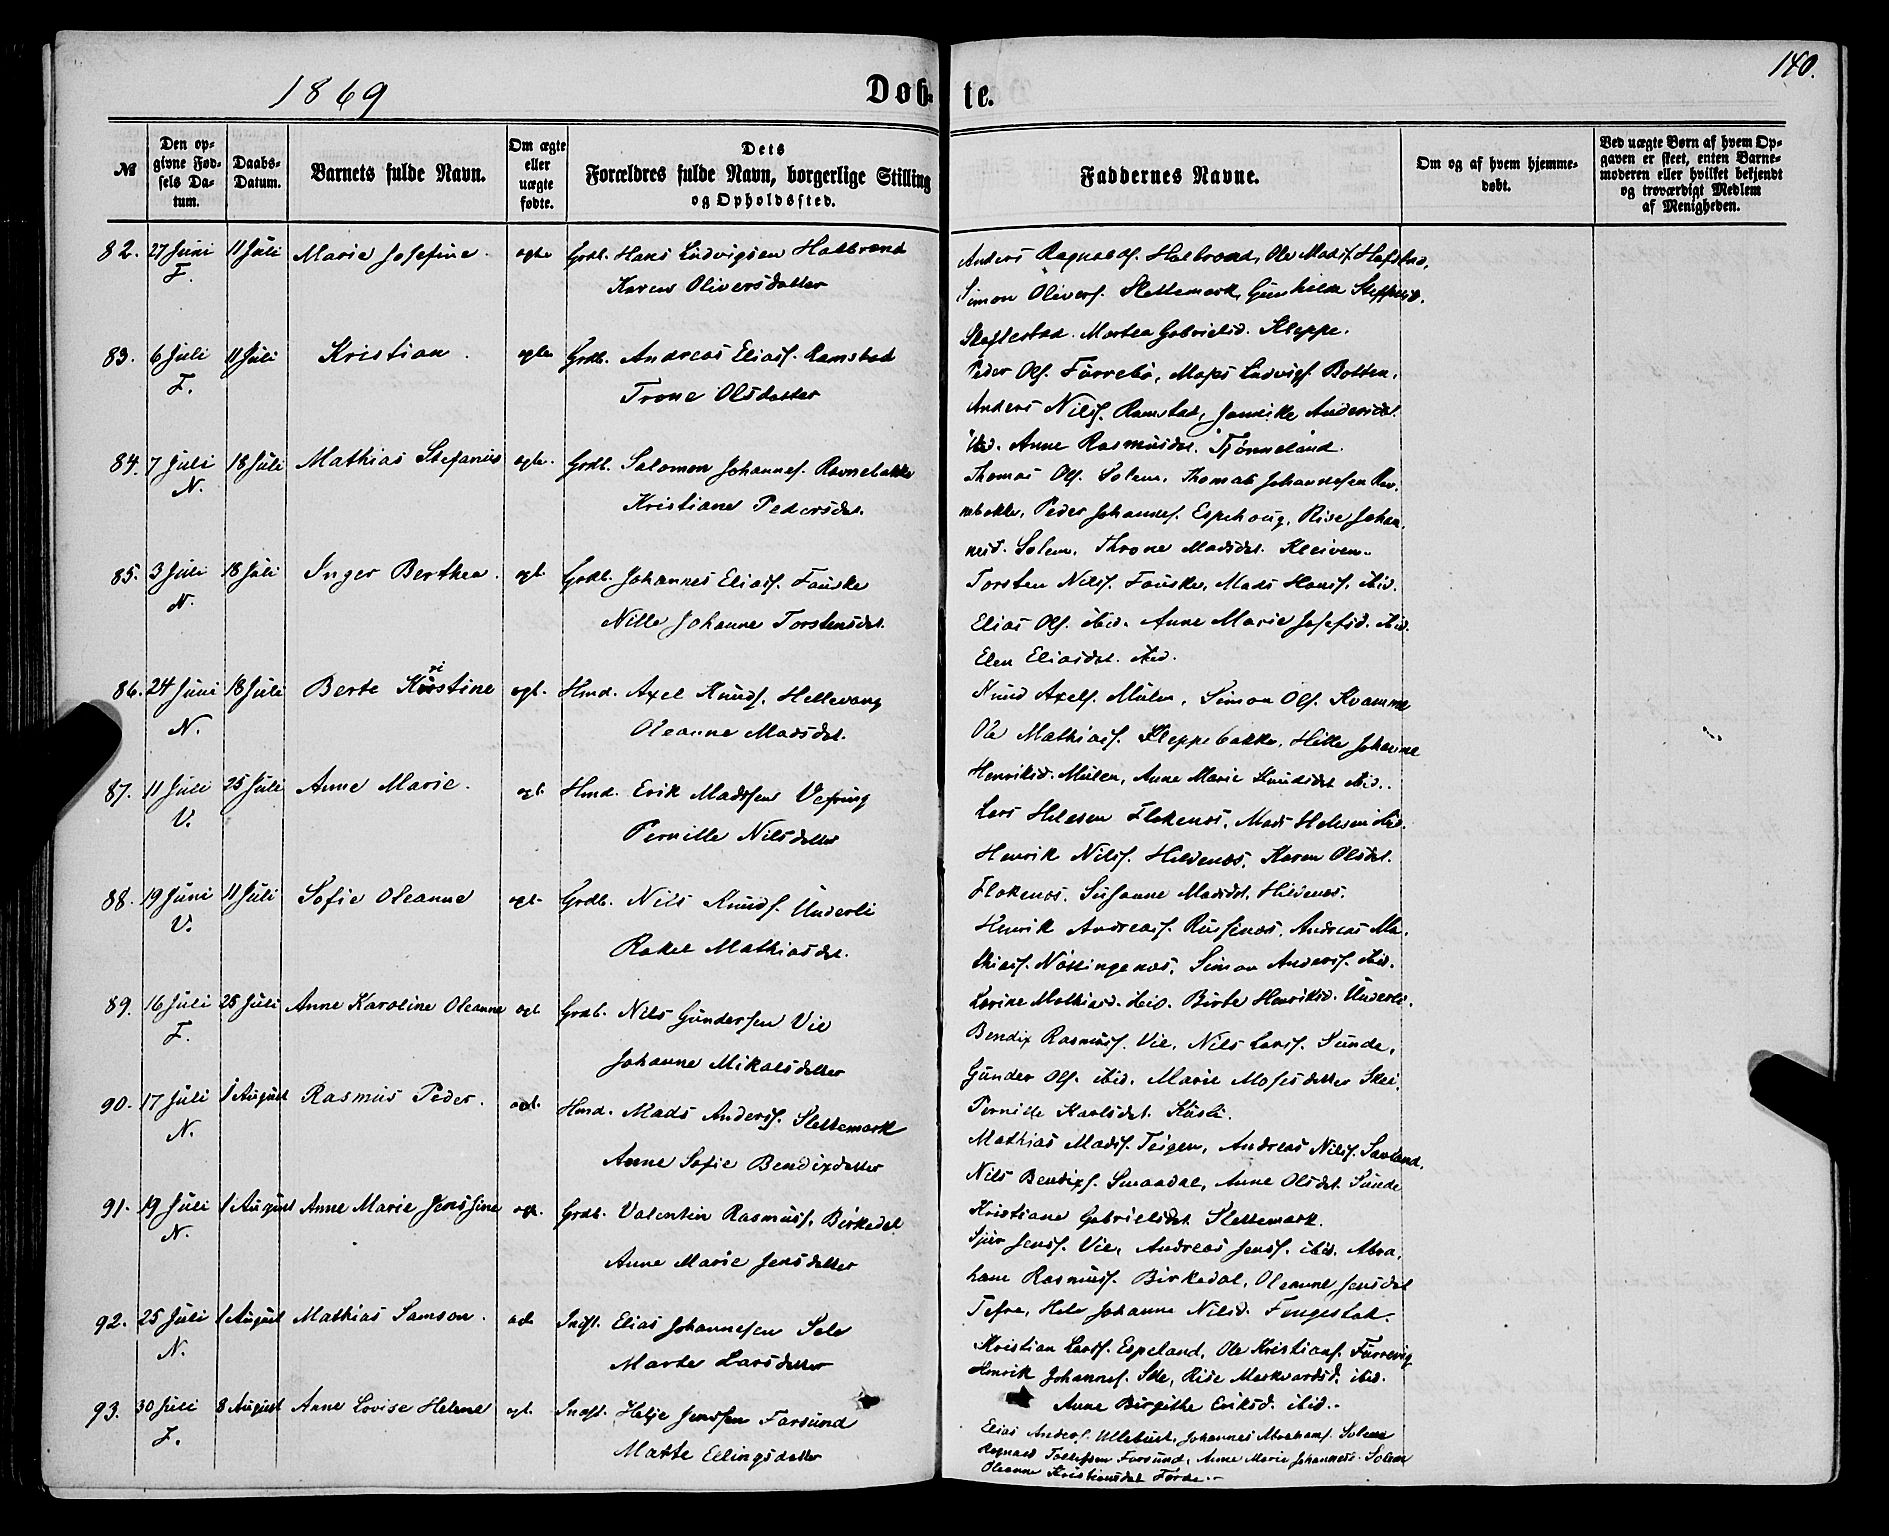 140.
1869
Døb- te.
№
Den opgivne Fødsels Datum.
Daabs-Datum.
Barnets fulde Navn.
Om ægte eller uægte fødte.
Dets Forældres fulde Navn, borgerlige Stilling og Opholdssted.
Faddernes Navne.
Om og af hvem hjemmedøbt.
Ved uægte Børn af hvem Opgaven er skeet, enten Barnemoderen eller hvilket bekjendt og troværdigt Medlem af Menigheden.
82. 27 Juni F. 11 Juli Marie Josefine. ægte Grdb. Hans Ludvigsen Halbrend
Karen Oliversdatter
Anders Ragnvaldf. Halbrend, Ole Madsf. Hafstad,
Simon Oliversf. Slettemark, Gunhilda Steffensd.
Marthea Gabrielsd. Kleppe.
83. 6 Juli F. 11 Juli Kristian. ægte Grdb. Andreas Eliasf. Ramstad
Trone Olsdatter
Peder Olf. Furrebø, Moses Ludvigf. Botten,
Anders Nilsf. Ramstad, Jannike Andersdat.
ibid. Anne Rasmusdat. Tjønneland.
84. 7 Juli N. 18 Juli Mathias Stefanus ægte. Grdb. Salomon Johannesf. Ravnebakke
Kristiane Pedersdat.
Thomas Olf. Solem, Thomas Johannesen Rav-
nebakke, Peder Johannesf. Espehoug, Rise Johan-
nesd. Solem, Throne Madsdat. Kleiven.
85. 3 Juli N. 18 Juli Inger Berthea. ægt. Grdb. Johannes Eliasf. Fauske
Nille Johanne Torstensdat.
Torsten Nilsf. Fauske, Mads Hansf. ibid.
Elias Olf. ibid. Anne Marie Josefsd. ibid.
Elen Eliasdat. ibid.
86. 24 Juni N. 18 Juli Berte Kristine ægt. Hmd. Axel Knudf. Hellevang
Oleanne Madsdat.
Knud Axelf. Mulen, Simon Olf. Kvamme
Ole Mathiasf. Kleppebakke, Hille Johanne
Henriksd. Mulen, Anne Marie Knudsdat ibid.
87. 11 Juli V. 25 Juli Anne Marie. ægt. Hmd. Erik Madssen Vefring
Pernille Nilsdatter
Lars Helesen Flokenes, Mads Helesen ibid.
Henrik Nilsf. Hildenes, Karen Olsdat.
Flokenes. Susanne Madsdat. Hildenes.
88. 19 Juni V. 11 Juli Sofie Oleanne ægt. Grdb. Nils Knudf. Underli
Rakel Mathiasdat.
Henrik Andreasf. Russenes, Andreas Ma-
thiasf. Nøttingenes, Simon Andersf. ibid.
Lovine Mathiasd. ibid. Birte Henriksd. Underli.
89. 16 Juli F. 25 Juli Anne Karoline Oleanne ægt. Grdb. Nils Gundersen Vie
Johanne Mikalsdatter
Bendix Rasmusf. Vie, Nils Larsf. Sunde,
Gunder Olf. ibid. Marie Mosesdatter Skei.
Pernille Karlsdat. Kusli.
90. 17 Juli N. 1 August Rasmus Peder. ægt. Hmd. Mads Andersf. Slettemark
Anne Sofie Bendixdatter
Mathias Madsf. Teigen, Andreas Nilsf. Savland,
Nils Bendixf. Smaadal, Anne Olsdat. Sunde
Kristiane Gabrielsdat. Slettemark.
91. 19 Juli N. 1 August Anne Marie Jenssine ægt. Grdb. Valentin Rasmusf. Birkedal
Anne Marie Jensdatter
Sjur Jensf. Vie, Andreas Jensf. ibid. Abra-
ham Rasmusf. Birkedal, Oleanne Jensdat
Tefre, Hele Johanne Nilsd. Fongestad.
92. 25 Juli N. 1 August Mathias Samson. Indst. Elias Johannesen Sele
Marte Larsdatter
Kristian Larsf. Espeland, Ole Kristianf. Furrevig
Henrik Johannesf. Sele, Rise Markvardsd. ibid.
Anne Birgithe Eriksd. ibid.
93. 30 Juli F. 8 August Anne Lovise Helene ægt. Indst. Helje Jenssen Farsund
Marte Ellingsdatter
Elias Andersf. Ullebust, Johannes Abrahamf. Solem
Ragnald Tollefsen Farsund, Anne Marie Johannesd. Solem
Oleanne Kristiansdat. Førde.